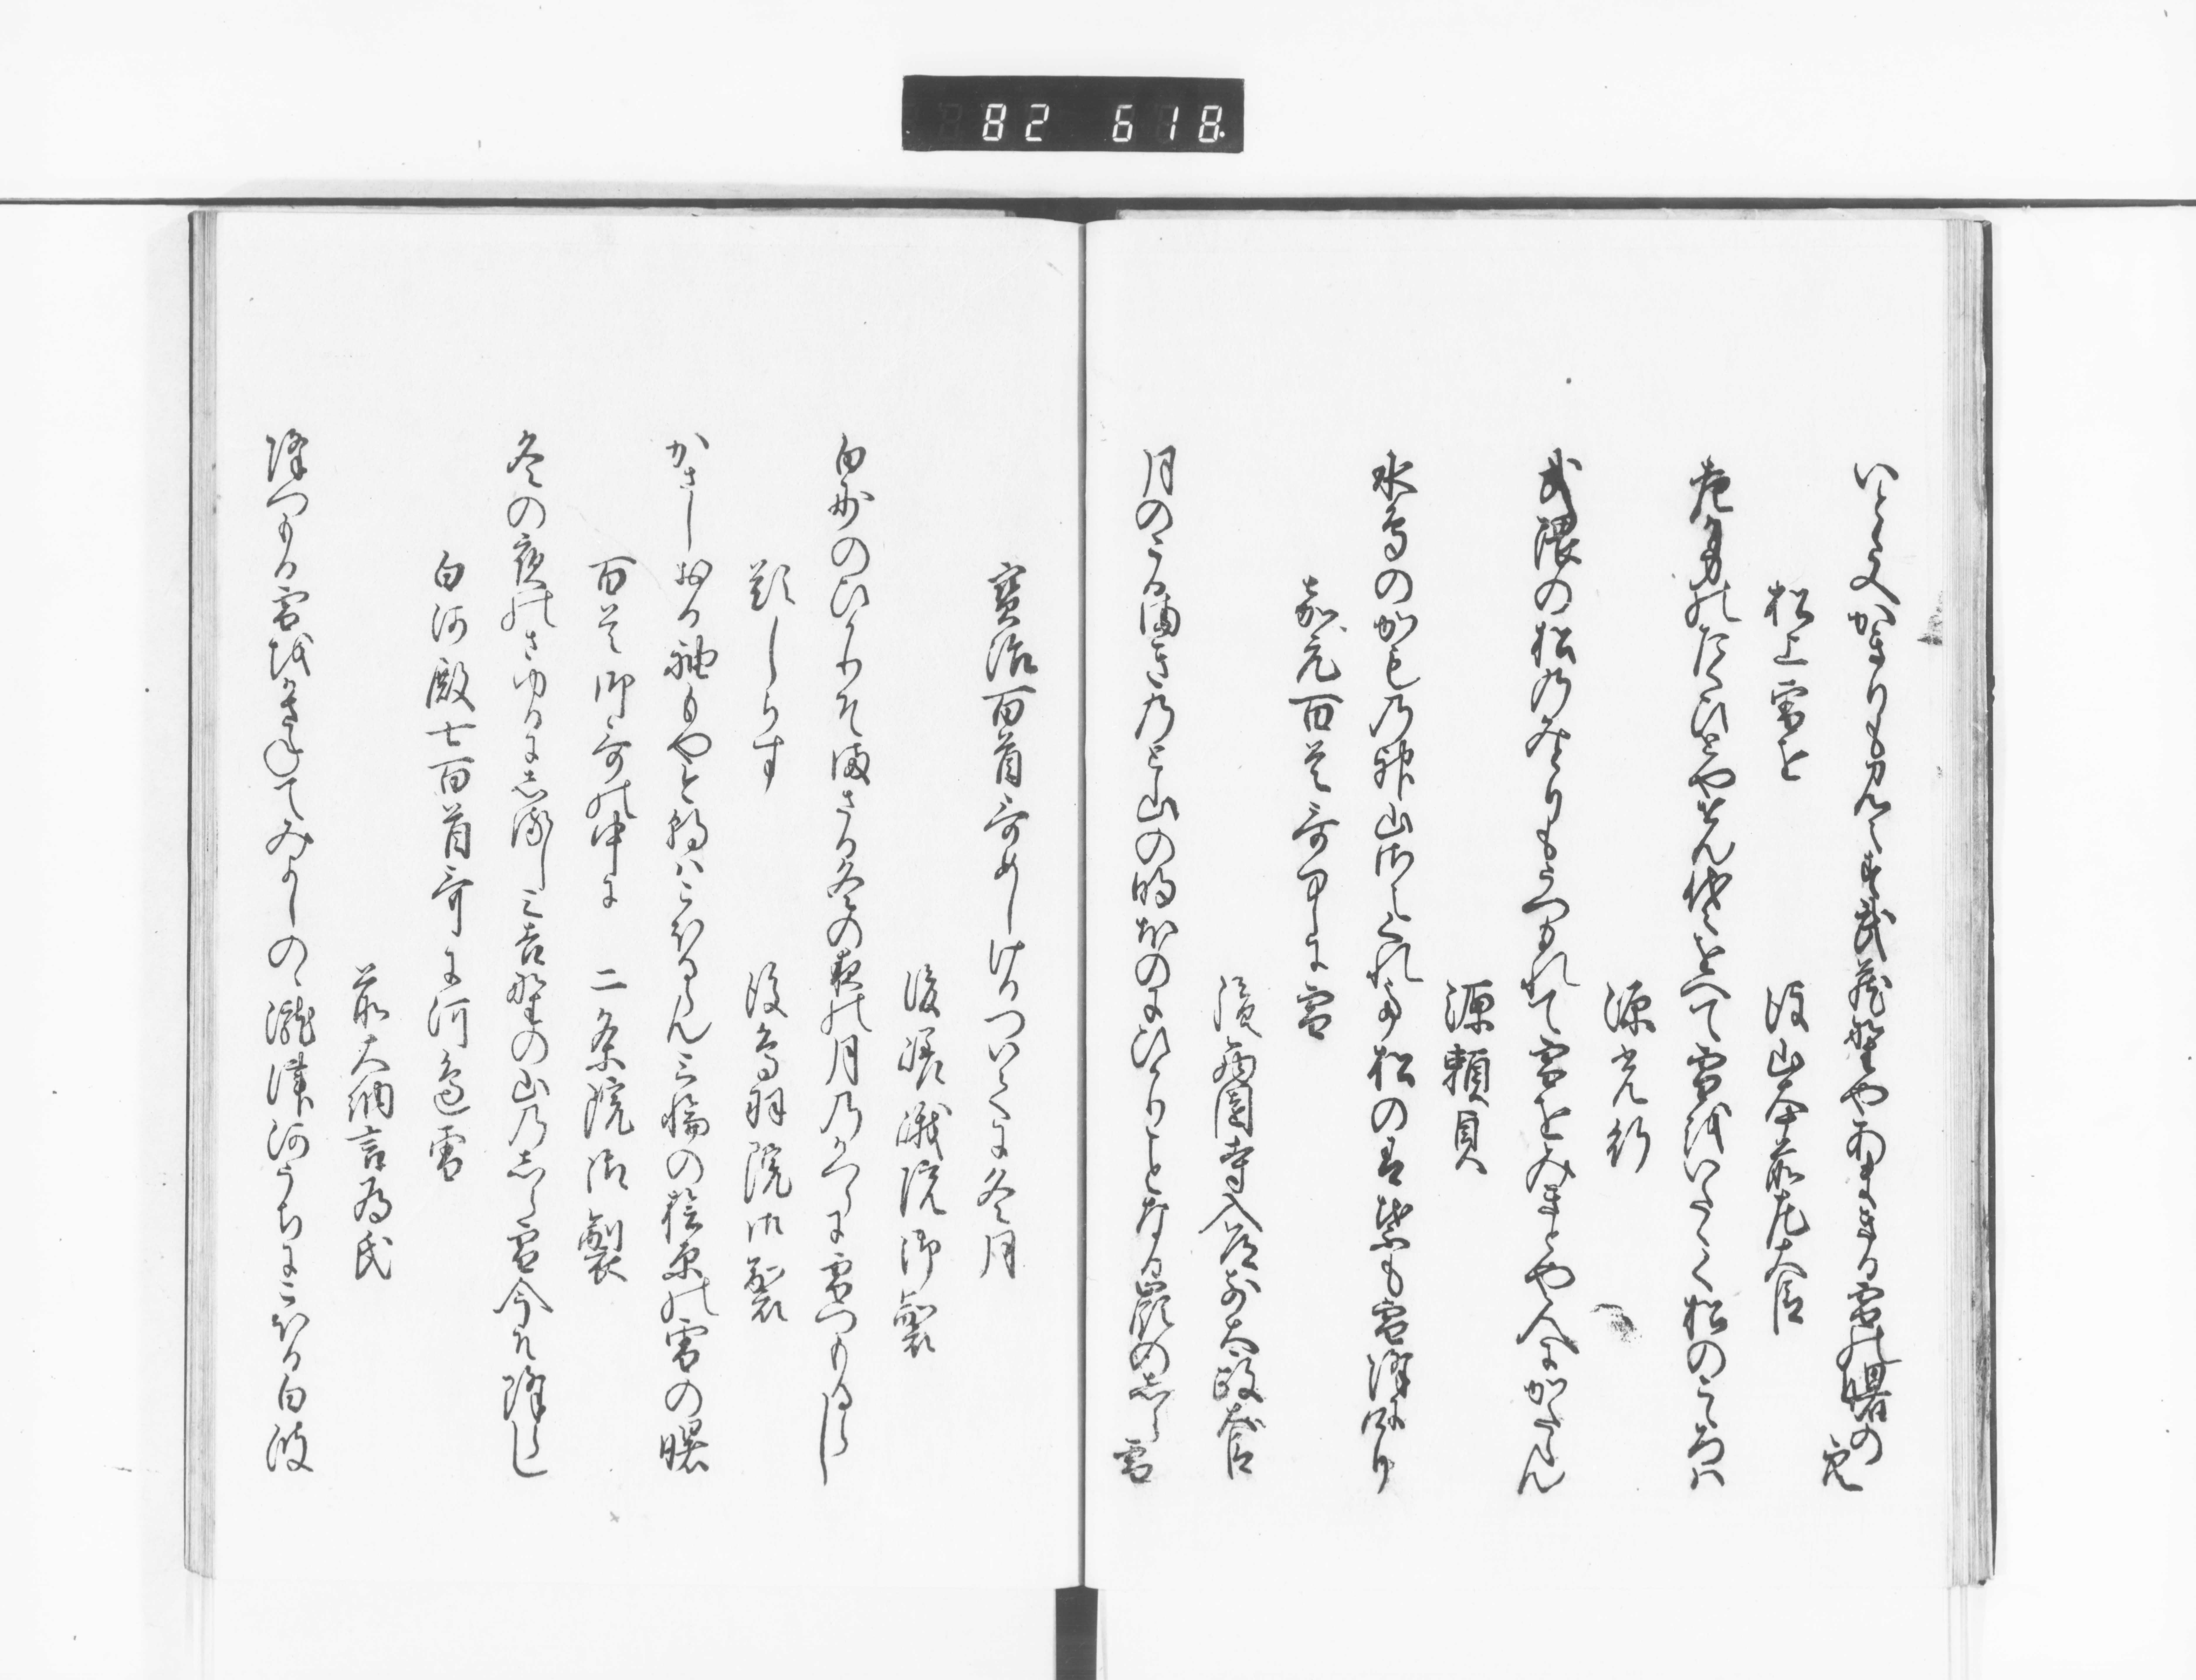 82 618
いと又かきりも見えす武蔵野やあまきる雪の曙の
空
松上雪を
後山本前左大臣
老か身のたくひとや見ん代々をへて雪をいたゝく松のこゝろは
源光行
武隈の松のみとりもうつもれて雪をみきとや人にかたらん
源頼貞
水鳥のかもの神山さえくれて松の青葉も雪降にけり
嘉元百首哥中に雪
後西園寺入道前太政大臣
月のこるまきのと山の明ほのにひかりことなる嶺の白
雪
宝治百首哥めしけるついてに冬月
後嵯峨院御製
白妙のひかりそまさる冬の夜の月のかつらに雪つもるらし
題しらす
後鳥羽院御製
かさしおる袖もやけさはこほるらん三輪の檜原の雪の曙
百首御哥の中に　二条院御製
冬の夜のさゆるにしるしみ吉野の山のしら雪今そ降らし
白河殿七百首哥に河辺雪
前大納言為氏
降つもる雪をかさねてみよしのゝ瀧津河うちにこほる白波